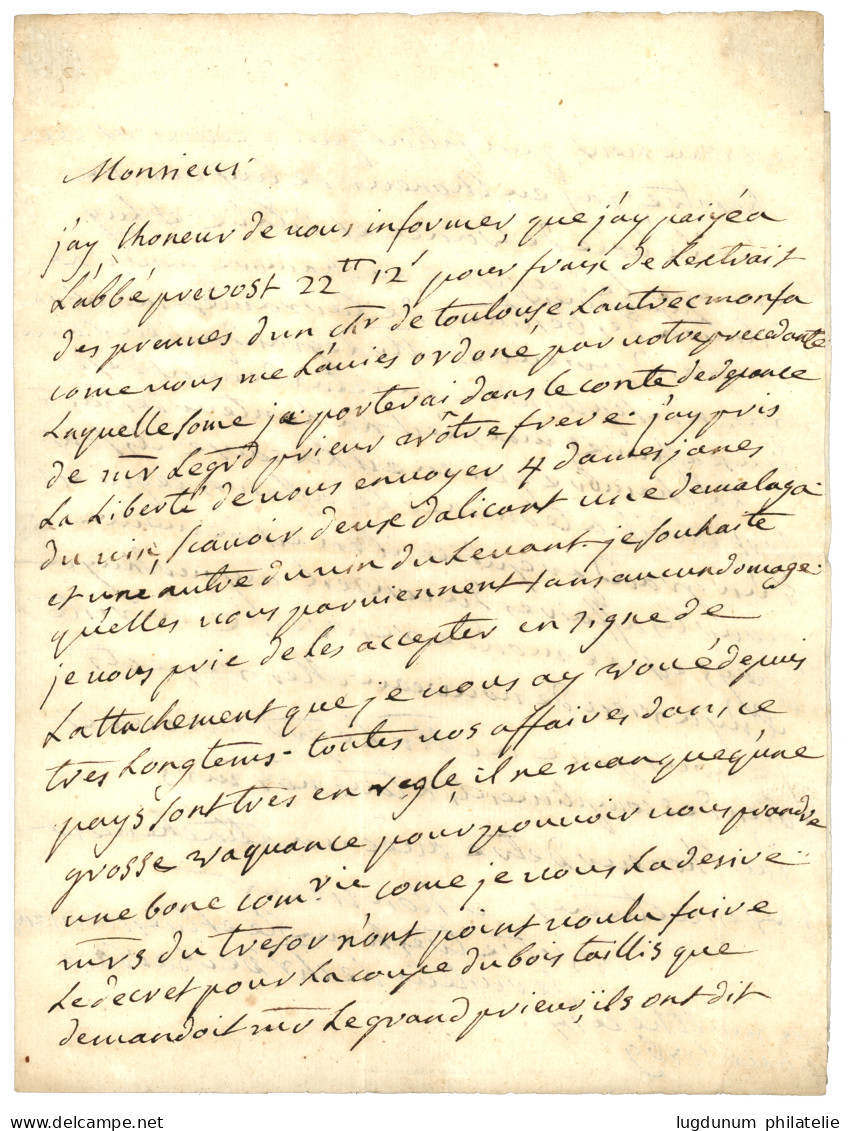 Monsieur
j'ay lhoneur de vous informer, que j'ay paiyé a
L'abbé prevost 22tt 12s pour fraix de Lextrait
des preuves d'un chr de toulouse Lautrec monfa
come vous me L'avies ordoné par votre precedante
Laquelle some je porterai dans le conte de depance
de mr Le grd prieur vôtre frere. j'ay pris
La Liberté de vous envoyer 4 dames janes
du vin, scavoir deux dalicant une de malaga
et une autre du vin du Levant. je souhaite
qu'elles vous parviennent sans aucun domage.
je vous prie de les accepter en signe de
Lattachement que je vous ay voué depuis
tres Longtems. toutes vos affaires dans ce
pays sont tres en regle, il ne manque qu'une
grosse vaquance pour pouvoir vous prandre
une bone comrie come je vous La desire
mrs du tresor n'ont point voulu faire
Le decret pour La coupe du bois taillis que
demandoit mr Le grand prieur, ils ont dit
lugdunum philatelie